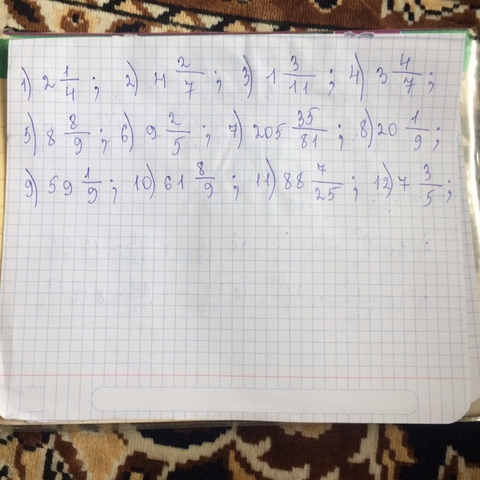 1) 2 1/4 ; 2) 4 2/7 ; 3) 1 3/11 ; 4) 3 4/7 ;
5) 8 8/9 ; 6) 9 2/5 ; 7) 205 35/81 ; 8) 20 1/9 ;
9) 59 1/9 ; 10) 61 8/9 ; 11) 88 7/25 ; 12) 7 3/5 ;